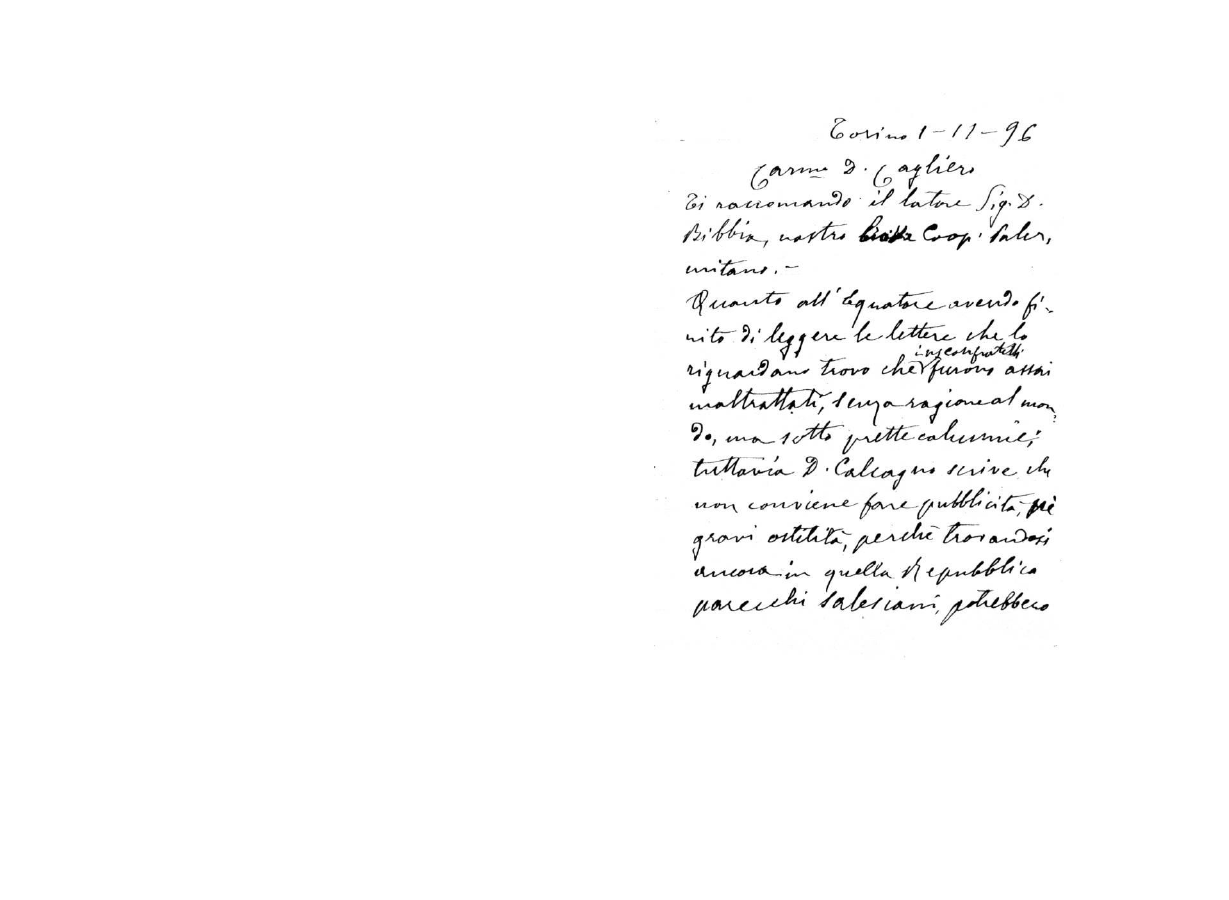 Torino 1-11-96
Carmo D. Cagliero
Ti raccomando il latore Sig. D.
Bibbia, nostro Coop. Paler,
mitano.-
Quanto all'Equatore avendo fi-
nito di leggere le lettere che lo
riguardano trovo che i ns confratelli furono assai
maltrattati, senza ragione al mon,
do, ma sotto prette calunnie;
tuttavia D. Calcagno scrive che
non conviene fare pubblicità, nè
gravi ostilità, perchè trovandosi
ancora in quella Repubblica
parecchi Salesiani, potrebbero